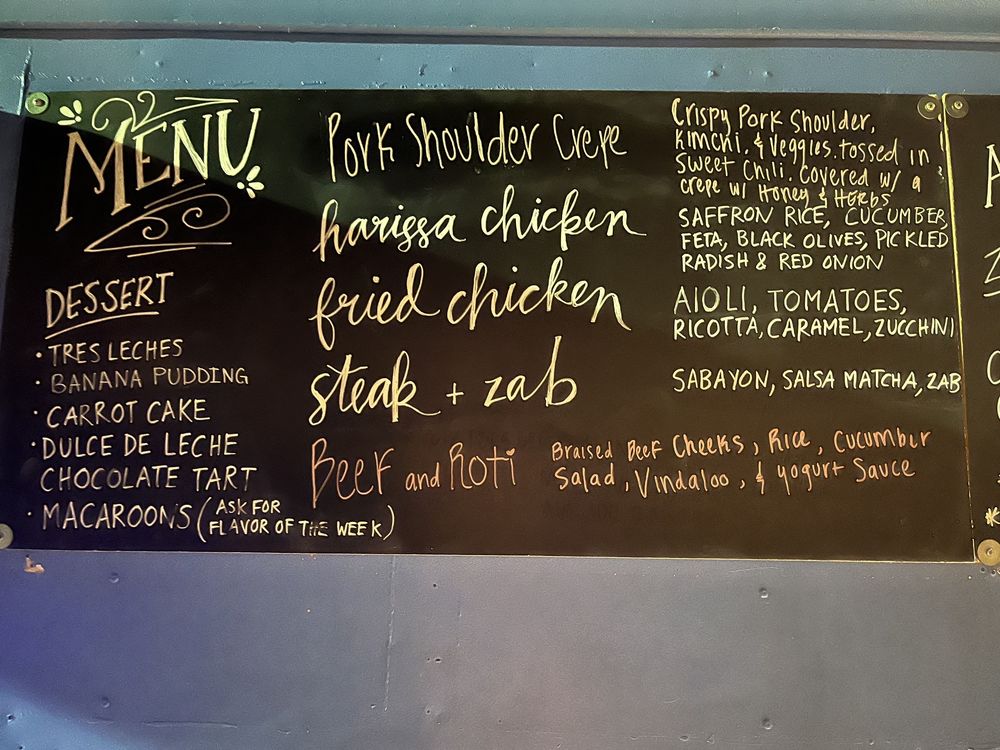 MENU
DESSERT
• TRES LECHES
• BANANA PUDDING
• CARROT CAKE
• DULCE DE LECHE
CHOCOLATE TART
• MACAROONS (ASK FOR
FLAVOR OF THE WEEK)
Pork Shoulder Crepe
Crispy Pork Shoulder,
Kimchi, & Veggies. tossed in
Sweet Chili. Covered w/ a
crepe w/ Honey & Herbs
harissa chicken
SAFFRON RICE, CUCUMBER,
FETA, BLACK OLIVES, PICKLED
RADISH & RED ONION
fried chicken
AIOLI, TOMATOES,
RICOTTA, CARAMEL, ZUCCHINI
steak + zab
SABAYON, SALSA MATCHA, ZAB
Beef and Roti
Braised Beef Cheeks, Rice, Cucumber
Salad, Vindaloo, & yogurt Sauce